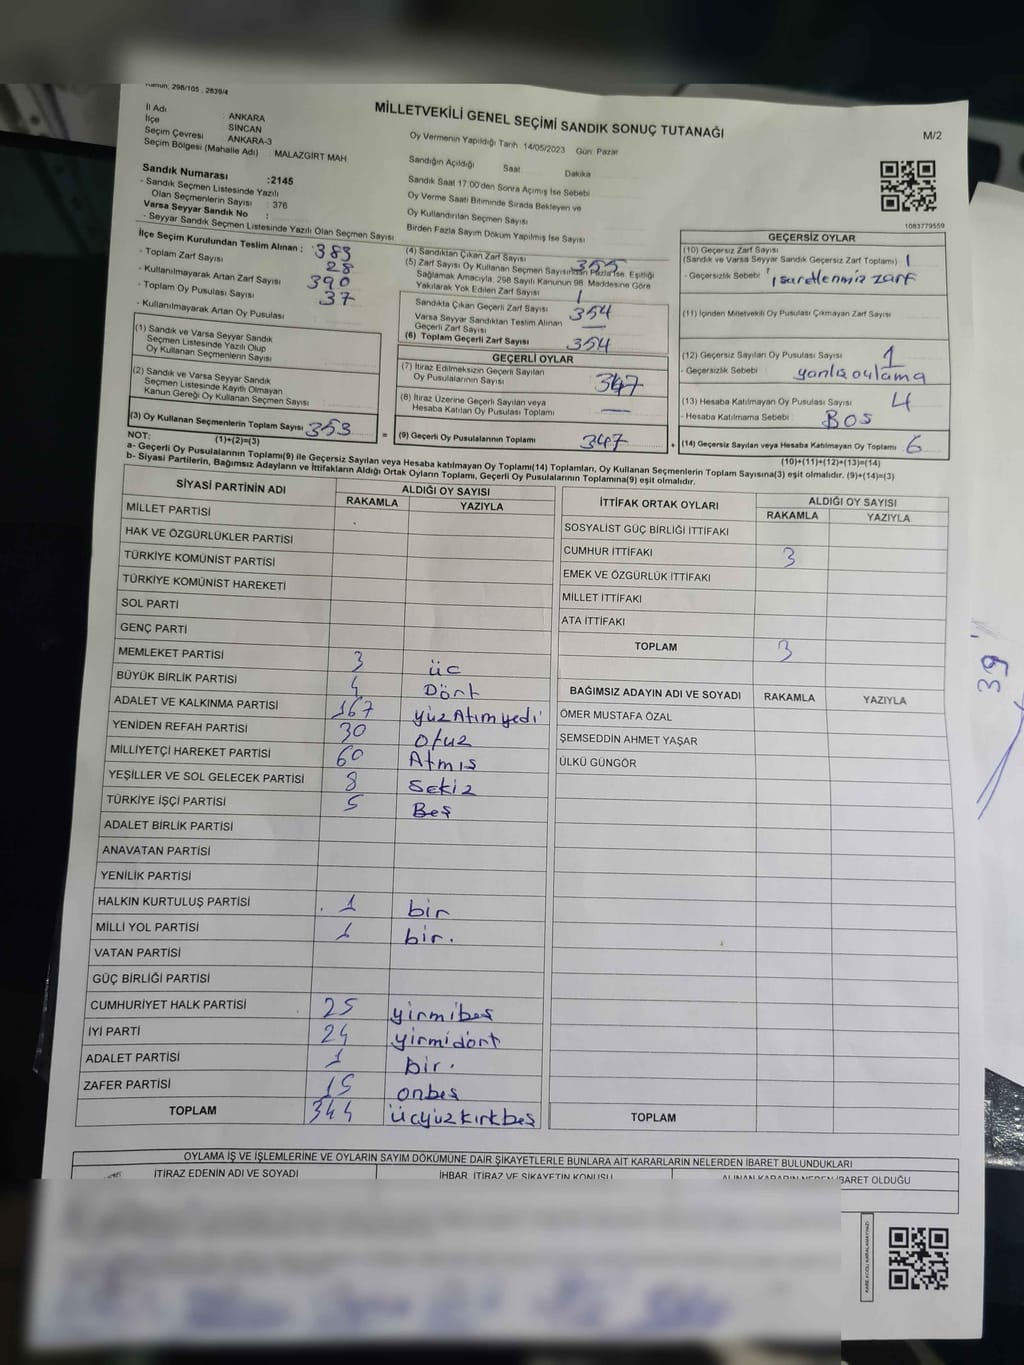 Kanun, 298/105 , 2839/4
MİLLETVEKİLİ GENEL SEÇİMİ SANDIK SONUÇ TUTANAĞI
M/2
İl Adı : ANKARA
İlçe : SİNCAN
Seçim Çevresi : ANKARA-3
Seçim Bölgesi (Mahalle Adı) : MALAZGIRT MAH
Oy Vermenin Yapıldığı Tarih 14/05/2023 Gün: Pazar
Sandığın Açıldığı Saat Dakika
Sandık Numarası :2145
- Sandık Seçmen Listesinde Yazılı
Olan Seçmenlerin Sayısı : 376
Varsa Seyyar Sandık No :
- Seyyar Sandık Seçmen Listesinde Yazılı Olan Seçmen Sayısı
Sandık Saat 17.00'den Sonra Açımış İse Sebebi
Oy Verme Saati Bitiminde Sırada Bekleyen ve
Oy Kullandırılan Seçmen Sayısı
Birden Fazla Sayım Döküm Yapılmış İse Sayısı
1083779559
İlçe Seçim Kurulundan Teslim Alınan :
- Toplam Zarf Sayısı 383
- Kullanılmayarak Artan Zarf Sayısı 28
- Toplam Oy Pusulası Sayısı 390
- Kullanılmayarak Artan Oy Pusulası 37
(1) Sandık ve Varsa Seyyar Sandık
Seçmen Listesinde Yazılı Olup
Oy Kullanan Seçmenlerin Sayısı
(2) Sandık ve Varsa Seyyar Sandık
Seçmen Listesinde Kayıtlı Olmayan
Kanun Gereği Oy Kullanan Seçmen Sayısı
(3) Oy Kullanan Seçmenlerin Toplam Sayısı 353
(1)+(2)=(3)
(4) Sandıktan Çıkan Zarf Sayısı 355
(5) Zarf Sayısı Oy Kullanan Seçmen Sayısından Fazla İse, Eşitliği
Sağlamak Amacıyla, 298 Sayılı Kanunun 98. Maddesine Göre
Yakılarak Yok Edilen Zarf Sayısı 1
Sandıkta Çıkan Geçerli Zarf Sayısı 354
Varsa Seyyar Sandıktan Teslim Alınan
Geçerli Zarf Sayısı —
(6) Toplam Geçerli Zarf Sayısı 354
GEÇERLİ OYLAR
(7) İtiraz Edilmeksizin Geçerli Sayılan
Oy Pusulalarının Sayısı 347
(8) İtiraz Üzerine Geçerli Sayılan veya
Hesaba Katılan Oy Pusulası Toplamı —
= (9) Geçerli Oy Pusulalarının Toplamı 347
GEÇERSİZ OYLAR
(10) Geçersiz Zarf Sayısı
(Sandık ve Varsa Seyyar Sandık Geçersiz Zarf Toplamı) 1
- Geçersizlik Sebebi : işaretlenmiz zarf
(11) İçinden Milletvekili Oy Pusulası Çıkmayan Zarf Sayısı
(12) Geçersiz Sayılan Oy Pusulası Sayısı 1
- Geçersizlik Sebebi yanlış oylama
(13) Hesaba Katılmayan Oy Pusulası Sayısı 4
- Hesaba Katılmama Sebebi BOS
+ (14) Geçersiz Sayılan veya Hesaba Katılmayan Oy Toplamı 6
(10)+(11)+(12)+(13)=(14)
NOT:
a- Geçerli Oy Pusulalarının Toplamı(9) ile Geçersiz Sayılan veya Hesaba katılmayan Oy Toplamı(14) Toplamları, Oy Kullanan Seçmenlerin Toplam Sayısına(3) eşit olmalıdır. (9)+(14)=(3)
b- Siyasi Partilerin, Bağımsız Adayların ve İttifakların Aldığı Ortak Oyların Toplamı, Geçerli Oy Pusulalarının Toplamına(9) eşit olmalıdır.
SİYASİ PARTİNİN ADI ALDIĞI OY SAYISI
RAKAMLA YAZIYLA
MİLLET PARTİSİ
HAK VE ÖZGÜRLÜKLER PARTİSİ
TÜRKİYE KOMÜNİST PARTİSİ
TÜRKİYE KOMÜNİST HAREKETİ
SOL PARTİ
GENÇ PARTİ
MEMLEKET PARTİSİ 3 üç
BÜYÜK BİRLİK PARTİSİ 4 Dört
ADALET VE KALKINMA PARTİSİ 167 yüzAtımyedi
YENİDEN REFAH PARTİSİ 30 otuz
MİLLİYETÇİ HAREKET PARTİSİ 60 Atmış
YEŞİLLER VE SOL GELECEK PARTİSİ 8 Sekiz
TÜRKİYE İŞÇİ PARTİSİ 5 Beş
ADALET BİRLİK PARTİSİ
ANAVATAN PARTİSİ
YENİLİK PARTİSİ
HALKIN KURTULUŞ PARTİSİ 1 bir
MİLLİ YOL PARTİSİ 1 bir.
VATAN PARTİSİ
GÜÇ BİRLİĞİ PARTİSİ
CUMHURİYET HALK PARTİSİ 25 yirmibeş
İYİ PARTİ 24 yirmidört
ADALET PARTİSİ 1 bir.
ZAFER PARTİSİ 15 onbeş
TOPLAM 344 üçyüzkırkbeş
İTTİFAK ORTAK OYLARI ALDIĞI OY SAYISI
RAKAMLA YAZIYLA
SOSYALİST GÜÇ BİRLİĞİ İTTİFAKI
CUMHUR İTTİFAKI 3
EMEK VE ÖZGÜRLÜK İTTİFAKI
MİLLET İTTİFAKI
ATA İTTİFAKI
TOPLAM 3
BAĞIMSIZ ADAYIN ADI VE SOYADI RAKAMLA YAZIYLA
ÖMER MUSTAFA ÖZAL
ŞEMSEDDİN AHMET YAŞAR
ÜLKÜ GÜNGÖR
TOPLAM
OYLAMA İŞ VE İŞLEMLERİNE VE OYLARIN SAYIM DÖKÜMÜNE DAİR ŞİKAYETLERLE BUNLARA AİT KARARLARIN NELERDEN İBARET BULUNDUKLARI
İTİRAZ EDENİN ADI VE SOYADI İHBAR, İTİRAZ VE ŞİKAYETİN KONUSU ALINAN KARARIN NEDEN İBARET OLDUĞU
KARE KODU KARALAMAYINIZ!
39